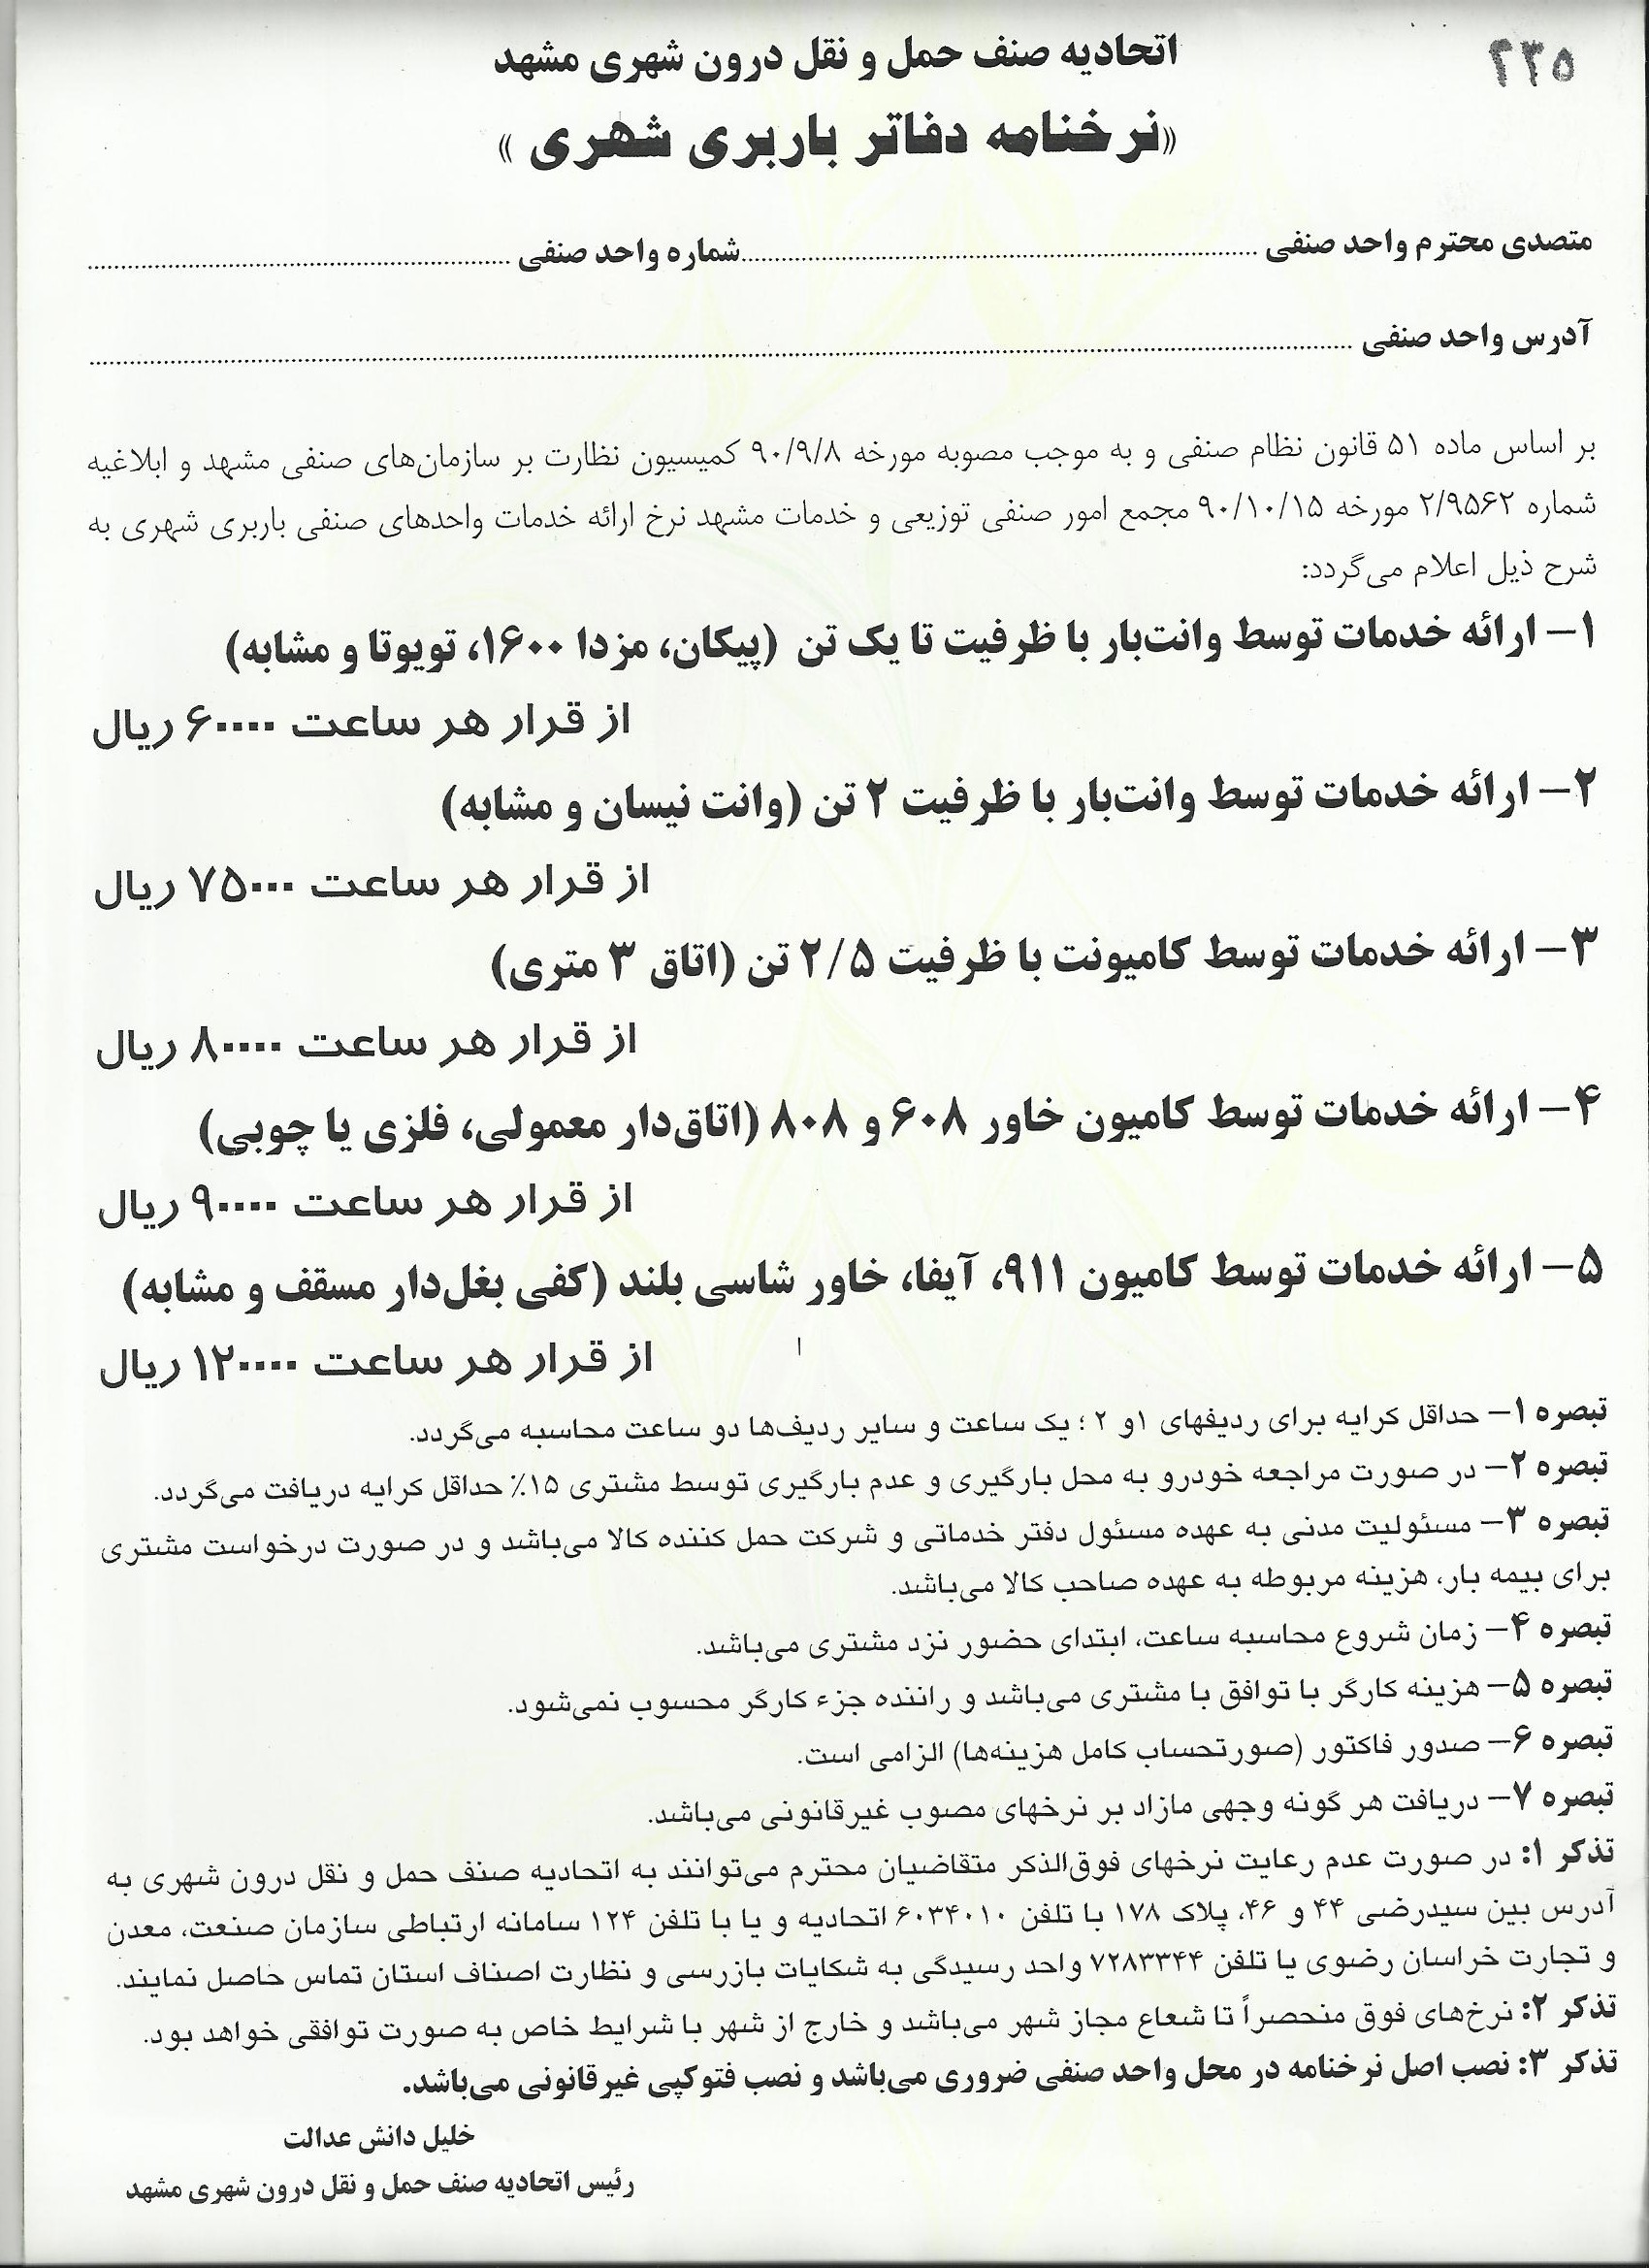 ۲۳۵
اتحادیه صنف حمل و نقل درون شهری مشهد
«نرخنامه دفاتر باربری شهری»
متصدی محترم واحد صنفی ........................ شماره واحد صنفی ........................
آدرس واحد صنفی ........................
بر اساس ماده ۵۱ قانون نظام صنفی و به موجب مصوبه مورخه ۹۰/۹/۸ کمیسیون نظارت بر سازمان‌های صنفی مشهد و ابلاغیه
شماره ۲/۹۵۶۲ مورخه ۹۰/۱۰/۱۵ مجمع امور صنفی توزیعی و خدمات مشهد نرخ ارائه خدمات واحدهای صنفی باربری شهری به
شرح ذیل اعلام می‌گردد:
۱- ارائه خدمات توسط وانت‌بار با ظرفیت تا یک تن (پیکان، مزدا ۱۶۰۰، تویوتا و مشابه)
از قرار هر ساعت ۶۰۰۰۰ ریال
۲- ارائه خدمات توسط وانت‌بار با ظرفیت ۲ تن (وانت نیسان و مشابه)
از قرار هر ساعت ۷۵۰۰۰ ریال
۳- ارائه خدمات توسط کامیونت با ظرفیت ۲/۵ تن (اتاق ۳ متری)
از قرار هر ساعت ۸۰۰۰۰ ریال
۴- ارائه خدمات توسط کامیون خاور ۶۰۸ و ۸۰۸ (اتاق‌دار معمولی، فلزی یا چوبی)
از قرار هر ساعت ۹۰۰۰۰ ریال
۵- ارائه خدمات توسط کامیون ۹۱۱، آیفا، خاور شاسی بلند (کفی بغل‌دار مسقف و مشابه)
از قرار هر ساعت ۱۲۰۰۰۰ ریال
تبصره ۱- حداقل کرایه برای ردیفهای ۱و ۲ ؛ یک ساعت و سایر ردیف‌ها دو ساعت محاسبه می‌گردد.
تبصره ۲- در صورت مراجعه خودرو به محل بارگیری و عدم بارگیری توسط مشتری ۱۵٪ حداقل کرایه دریافت می‌گردد.
تبصره ۳- مسئولیت مدنی به عهده مسئول دفتر خدماتی و شرکت حمل کننده کالا می‌باشد و در صورت درخواست مشتری
برای بیمه بار، هزینه مربوطه به عهده صاحب کالا می‌باشد.
تبصره ۴- زمان شروع محاسبه ساعت، ابتدای حضور نزد مشتری می‌باشد.
تبصره ۵- هزینه کارگر با توافق با مشتری می‌باشد و راننده جزء کارگر محسوب نمی‌شود.
تبصره ۶- صدور فاکتور (صورتحساب کامل هزینه‌ها) الزامی است.
تبصره ۷- دریافت هر گونه وجهی مازاد بر نرخهای مصوب غیرقانونی می‌باشد.
تذکر ۱: در صورت عدم رعایت نرخهای فوق‌الذکر متقاضیان محترم می‌توانند به اتحادیه صنف حمل و نقل درون شهری به
آدرس بین سیدرضی ۴۴ و ۴۶، پلاک ۱۷۸ با تلفن ۶۰۳۴۰۱۰ اتحادیه و یا با تلفن ۱۲۴ سامانه ارتباطی سازمان صنعت، معدن
و تجارت خراسان رضوی یا تلفن ۷۲۸۳۳۴۴ واحد رسیدگی به شکایات بازرسی و نظارت اصناف استان تماس حاصل نمایند.
تذکر ۲: نرخ‌های فوق منحصراً تا شعاع مجاز شهر می‌باشد و خارج از شهر با شرایط خاص به صورت توافقی خواهد بود.
تذکر ۳: نصب اصل نرخنامه در محل واحد صنفی ضروری می‌باشد و نصب فتوکپی غیرقانونی می‌باشد.
خلیل دانش عدالت
رئیس اتحادیه صنف حمل و نقل درون شهری مشهد